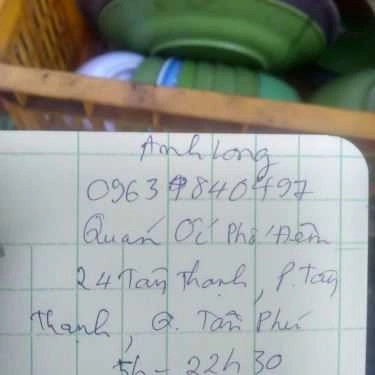 Anh Long
0963 840 497
Quán Ốc Phố Đêm
24 Tân Thạnh, P. Tân
Thạnh, Q. Tân Phú
5h - 22h30